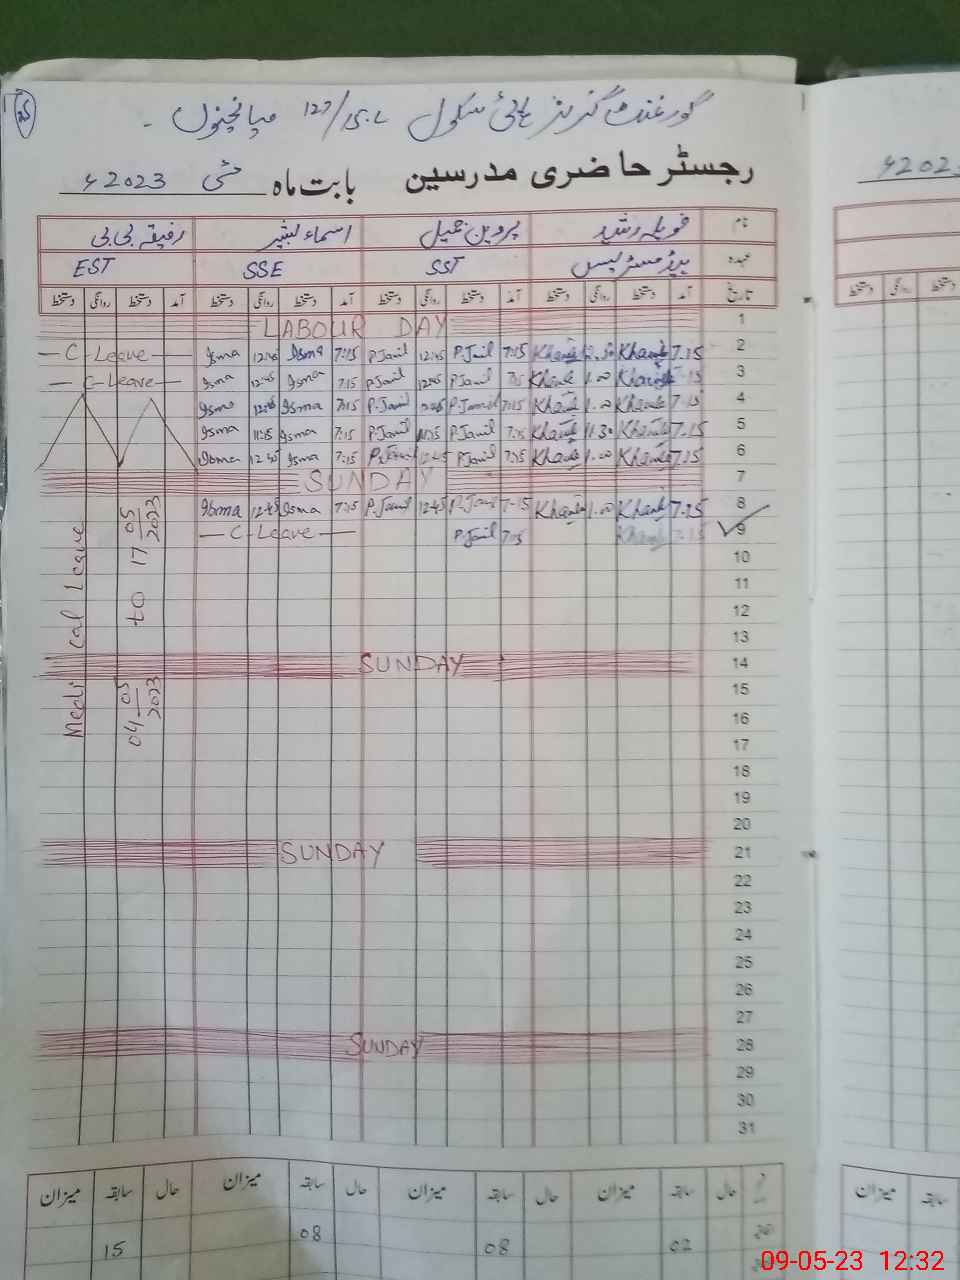 25
گورنمنٹ گرلز ہائی سکول 127/15.L میانچنوں ۔
رجسٹر حاضری مدرسین بابت ماہ مئی 2023ء
2023ء
نام رشید پروین جمیل اسماء بشیر رفیقہ بی بی
عہدہ ہیڈ مسٹریس SST SSE EST
تاریخ آمد دستخط روانگی دستخط آمد دستخط روانگی دستخط آمد دستخط روانگی دستخط آمد دستخط روانگی دستخط
دستخط روانگی دستخط
LABOUR DAY 1
— C-Leave — Isma 12:45 Isma 7:15 P.Jamil 12:45 P.Jamil 7:15 2.30 7.15 2
— C-Leave — Isma 12:45 Isma 7:15 P.Jamil 12:45 P.Jamil 7:15 1.00 7.15 3
Isma 12:45 Isma 7:15 P.Jamil 12:45 P.Jamil 7:15 1.00 7.15 4
Isma 11:15 Isma 7:15 P.Jamil 11:15 P.Jamil 7:15 11.30 7.15 5
Isma 12:45 Isma 7:15 P.Jamil 12:45 P.Jamil 7:15 1.00 7.15 6
SUNDAY 7
Isma 12:45 Isma 7:15 P.Jamil 12:45 P.Jamil 7:15 1.00 7.15 8
— C-Leave — P.Jamil 7:15 7.15 9
Medical Leave
04-05-2023 to 17-05-2023
10
11
12
13
SUNDAY 14
15
16
17
18
19
20
SUNDAY 21
22
23
24
25
26
27
SUNDAY 28
29
30
31
حال سابقہ میزان حال سابقہ میزان حال سابقہ میزان حال سابقہ میزان
سابقہ میزان
02 08 08 15
09-05-23 12:32